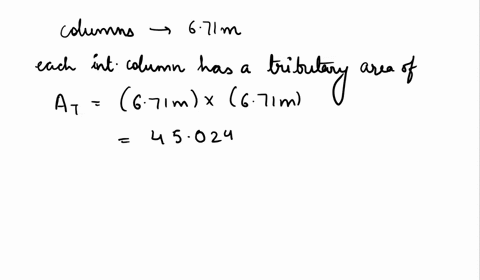 columns → 6.71m
each int. column has a tributary area of
A_T = (6.71m) × (6.71m)
= 45.024